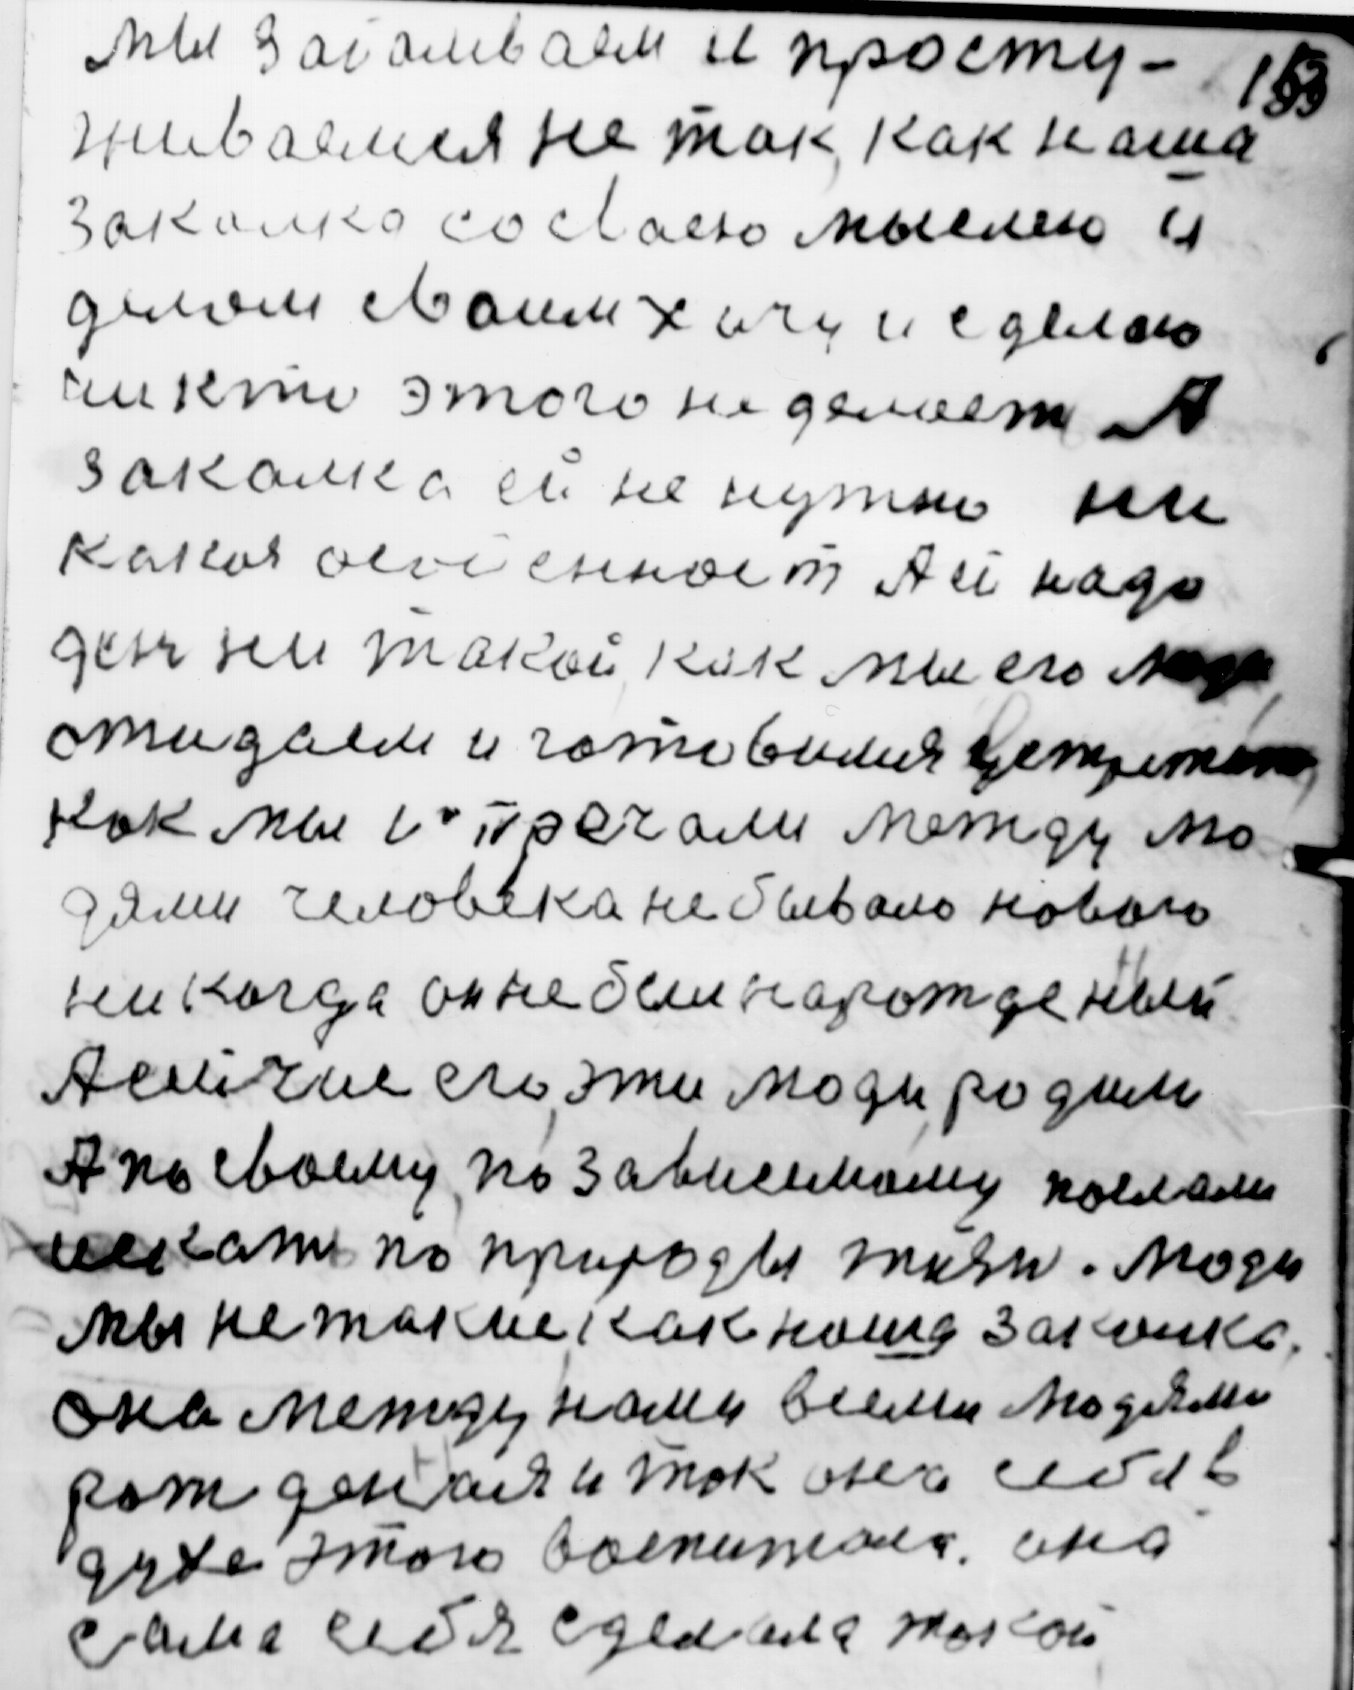 153
мы заболеваем и просту-
живаемся не так, как наша
закалка со своею мыслею и
делом своим хочу и сделаю
никто этого не делает А
закалка ей не нужно ни
какая особенност А ей надо
ден ни такой, как мы его люди
ожидаем и готовимся встретит,
как мы встречали между лю
дями человека не бывало нового
ни когда он не был нарожденый
А сейчас его, эти люди, родили
А по своему, по зависемому послали
искать по природы жизн. Люди
мы не такие, как наша закалка,
она между нами всеми людями
рожденная и так она себя в
духе этого воспитала. она
сама себя сделала такой